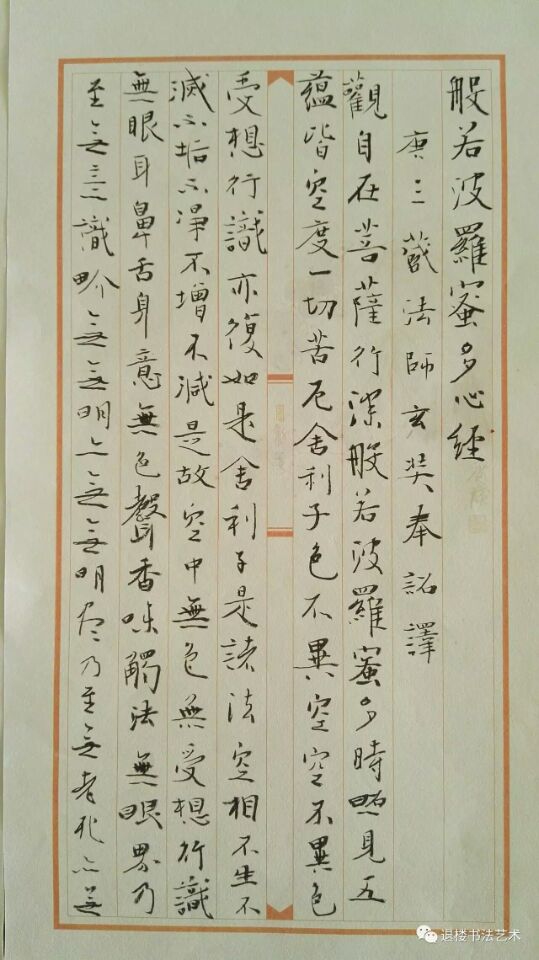 般若波羅蜜多心經
唐三藏法師玄奘奉詔譯
觀自在菩薩行深般若波羅蜜多時照見五
蘊皆空度一切苦厄舍利子色不異空空不異色
受想行識亦復如是舍利子是諸法空相不生不
滅不垢不淨不增不減是故空中無色無受想行識
無眼耳鼻舌身意無色聲香味觸法無眼界乃
至無意識畍無無明亦無無明尽乃至無老死亦無
退楼书法艺术